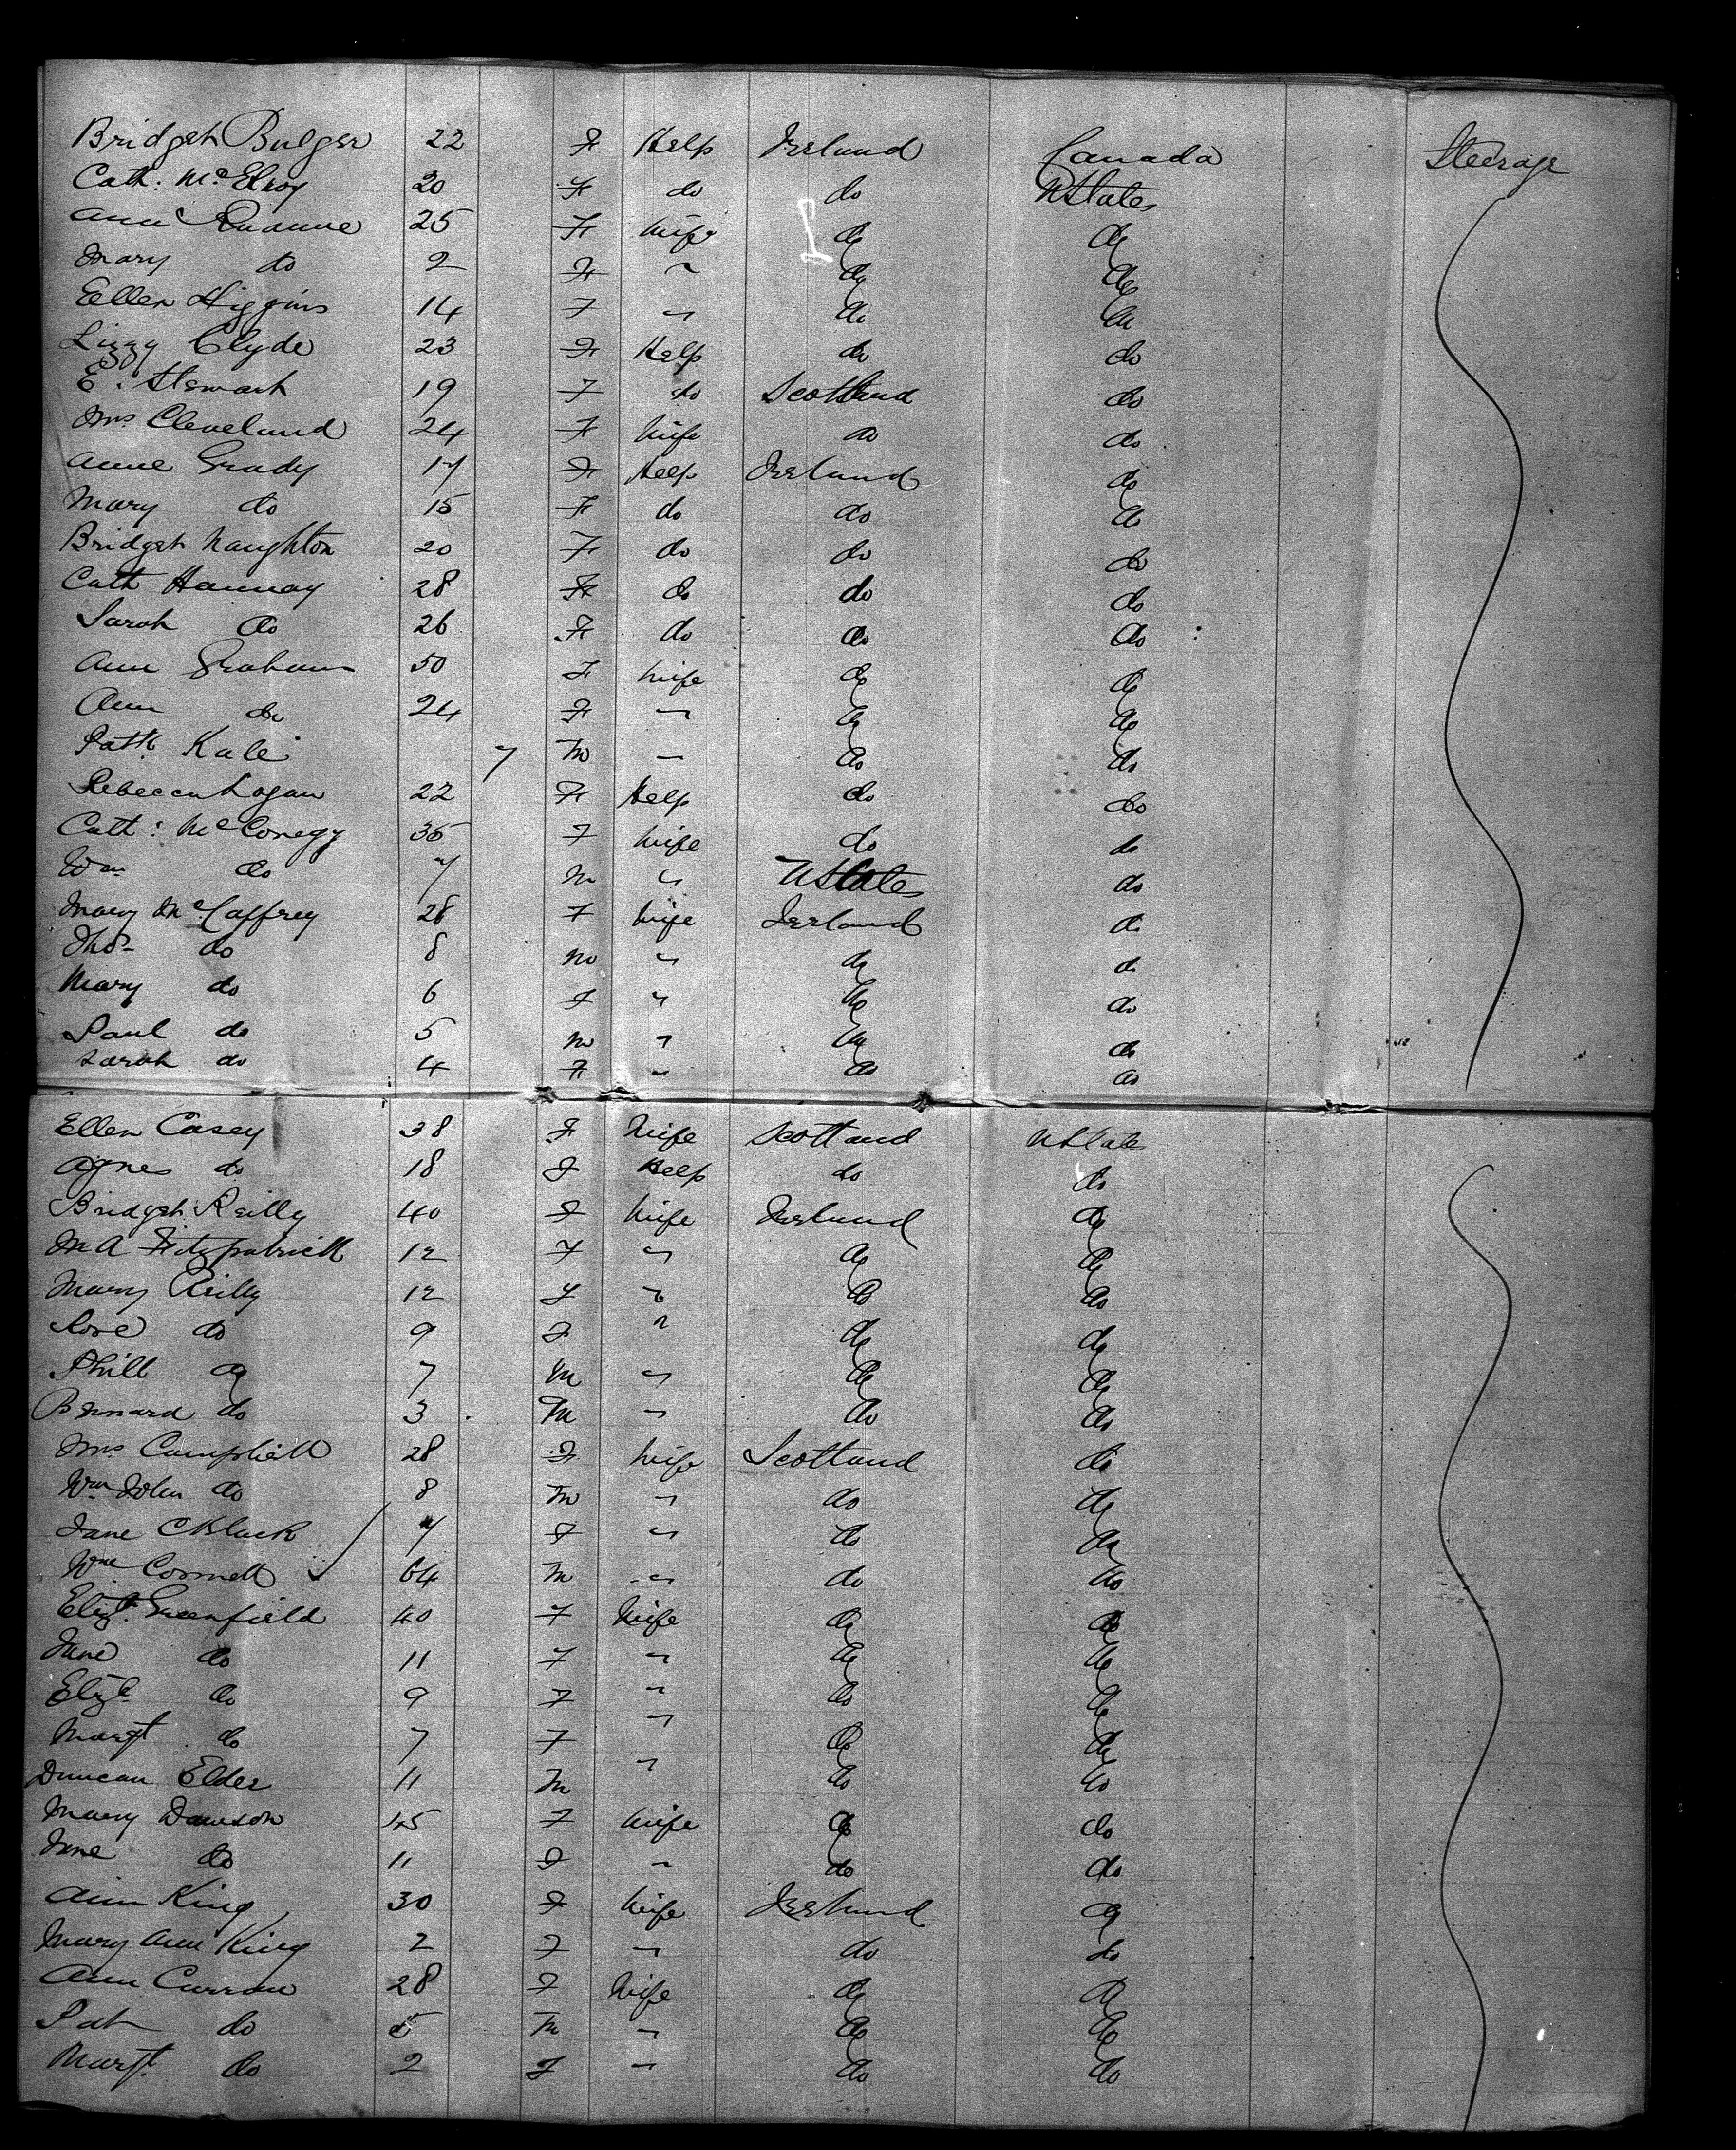 Bridget Bulger 22 F Help Ireland Canada Steerage
Cath: McElroy 20 F do do UStates
Ann Ruanne 25 F Wife do do
Mary do 2 F " do do
Ellen Higgins 14 F " do do
Lizzy Clyde 23 F Help do do
E. Stewart 19 F do Scotland do
Mrs Cleveland 24 F Wife do do
Anne Grady 17 F Help Ireland do
Mary do 15 F do do do
Bridget Naughton 20 F do do do
Cath Hannay 28 F do do do
Sarah do 26 F do do do
Ann Graham 50 F Wife do do
Ann do 24 F " do do
Patk Kale 7 M " do do
Rebecca Logan 22 F Help do do
Cath: McConegy 35 F Wife do do
Wm do 7 M " UStates do
Mary McCaffrey 28 F Wife Ireland do
Thos do 8 M " do do
Mary do 6 F " do do
Paul do 5 M " do do
Sarah do 4 F " do do
Ellen Casey 38 F Wife Scotland UState
Agnes do 18 F Help do do
Bridget Reilly 40 F Wife Ireland do
M A Fitzpatrick 12 F " do do
Mary Reilly 12 F " do do
Rose do 9 F " do do
Phill do 7 M " do do
Bernard do 3 M " do do
Mrs Campbell 28 F Wife Scotland do
Wm John do 8 M " do do
Jane Black 7 F " do do
Wm Cornell 64 M " do do
Elizt Greenfield 40 F Wife do do
Jane do 11 F " do do
Elizt do 9 F " do do
Margt do 7 F " do do
Duncan Elder 11 M " do do
Mary Dawson 45 F Wife do do
Jane do 11 F " do do
Ann King 30 F Wife Ireland do
Mary Ann King 2 F " do do
Ann Curran 28 F Wife do do
Pat do 5 M " do do
Margt do 2 F " do do